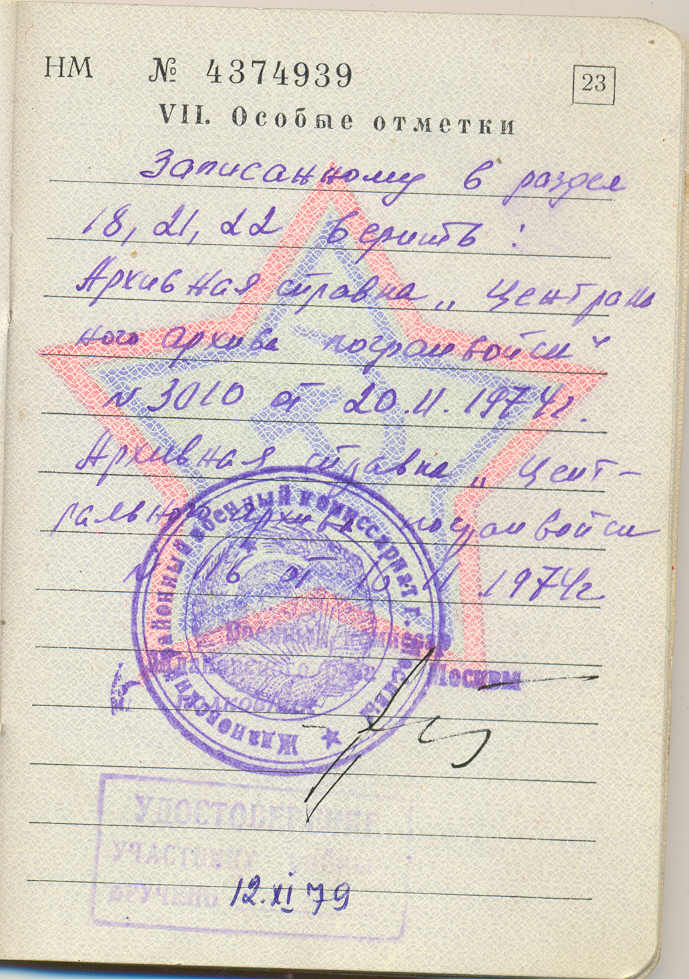 НМ № 4374939
23
VII. Особые отметки
Записанному в раздел
18, 21, 22 верить:
Архивная справка „Централь
ного архива погранвойск"
№ 3010 от 20.11.1974г.
Архивная справка „Цент-
рального архива погранвойск
№ 16 от 16 11 1974г
Ждановский районный военный комиссариат г. Москвы
Военный комиссар
Москвы
УДОСТОВЕРЕНИЕ
УЧАСТНИКА
ВРУЧЕНО
12.XI 79